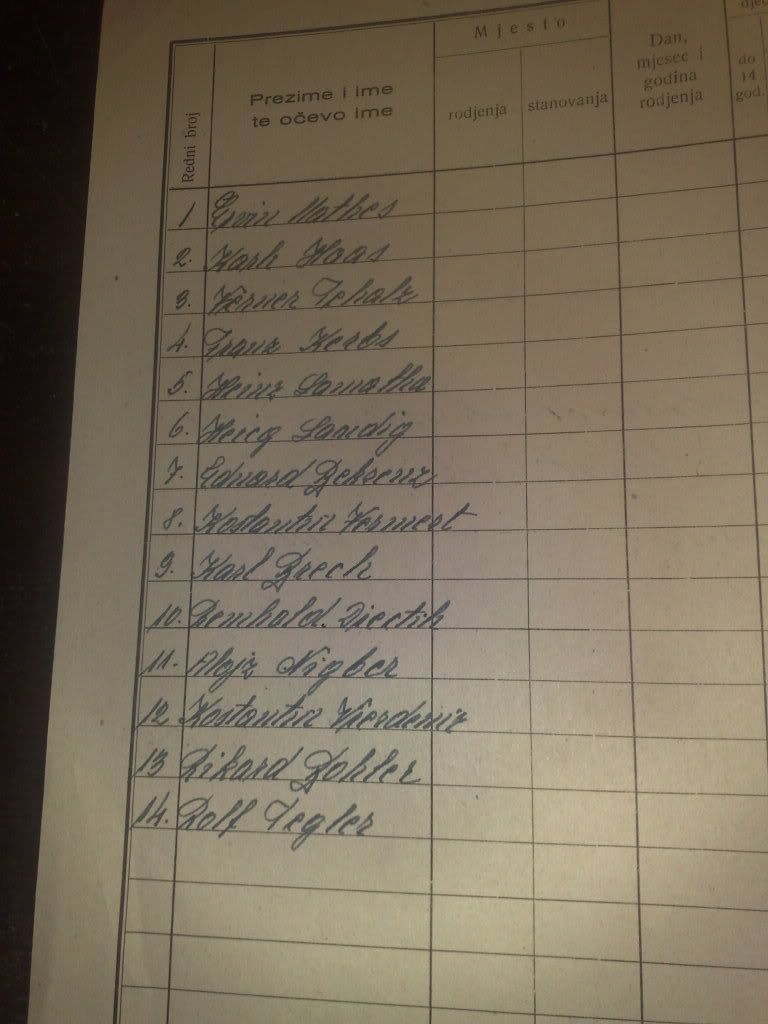 Redni broj
Prezime i ime
te očevo ime
Mjesto
rodjenja
stanovanja
Dan,
mjesec i
godina
rodjenja
do
14
god.
1 Ervin Mathes
2. Karh Haas
3. Verner Scholz
4. Franz Kerbs
5. Heinz Lamatha
6. Landig
7. Eduard
8. Kostantin Vermest
9. Karl Brech
10. Remhold.
11. Alojz Nigber
12 Kostantin
13 Rikard Dohler
14. Rolf Tegler